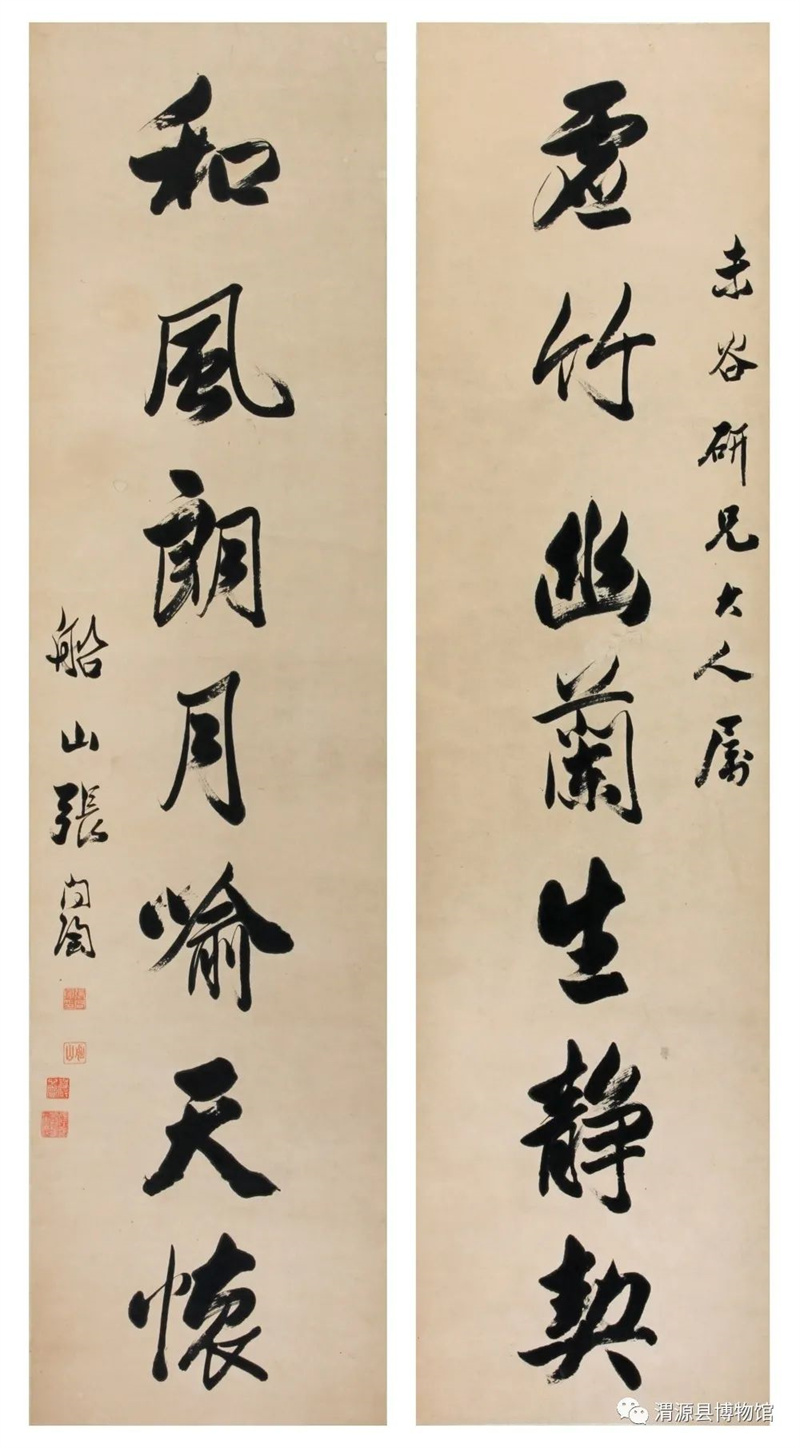 未谷研兄大人属
虚竹幽蘭生静契
和風朗月喻天懷
船山張問陶
渭源县博物馆